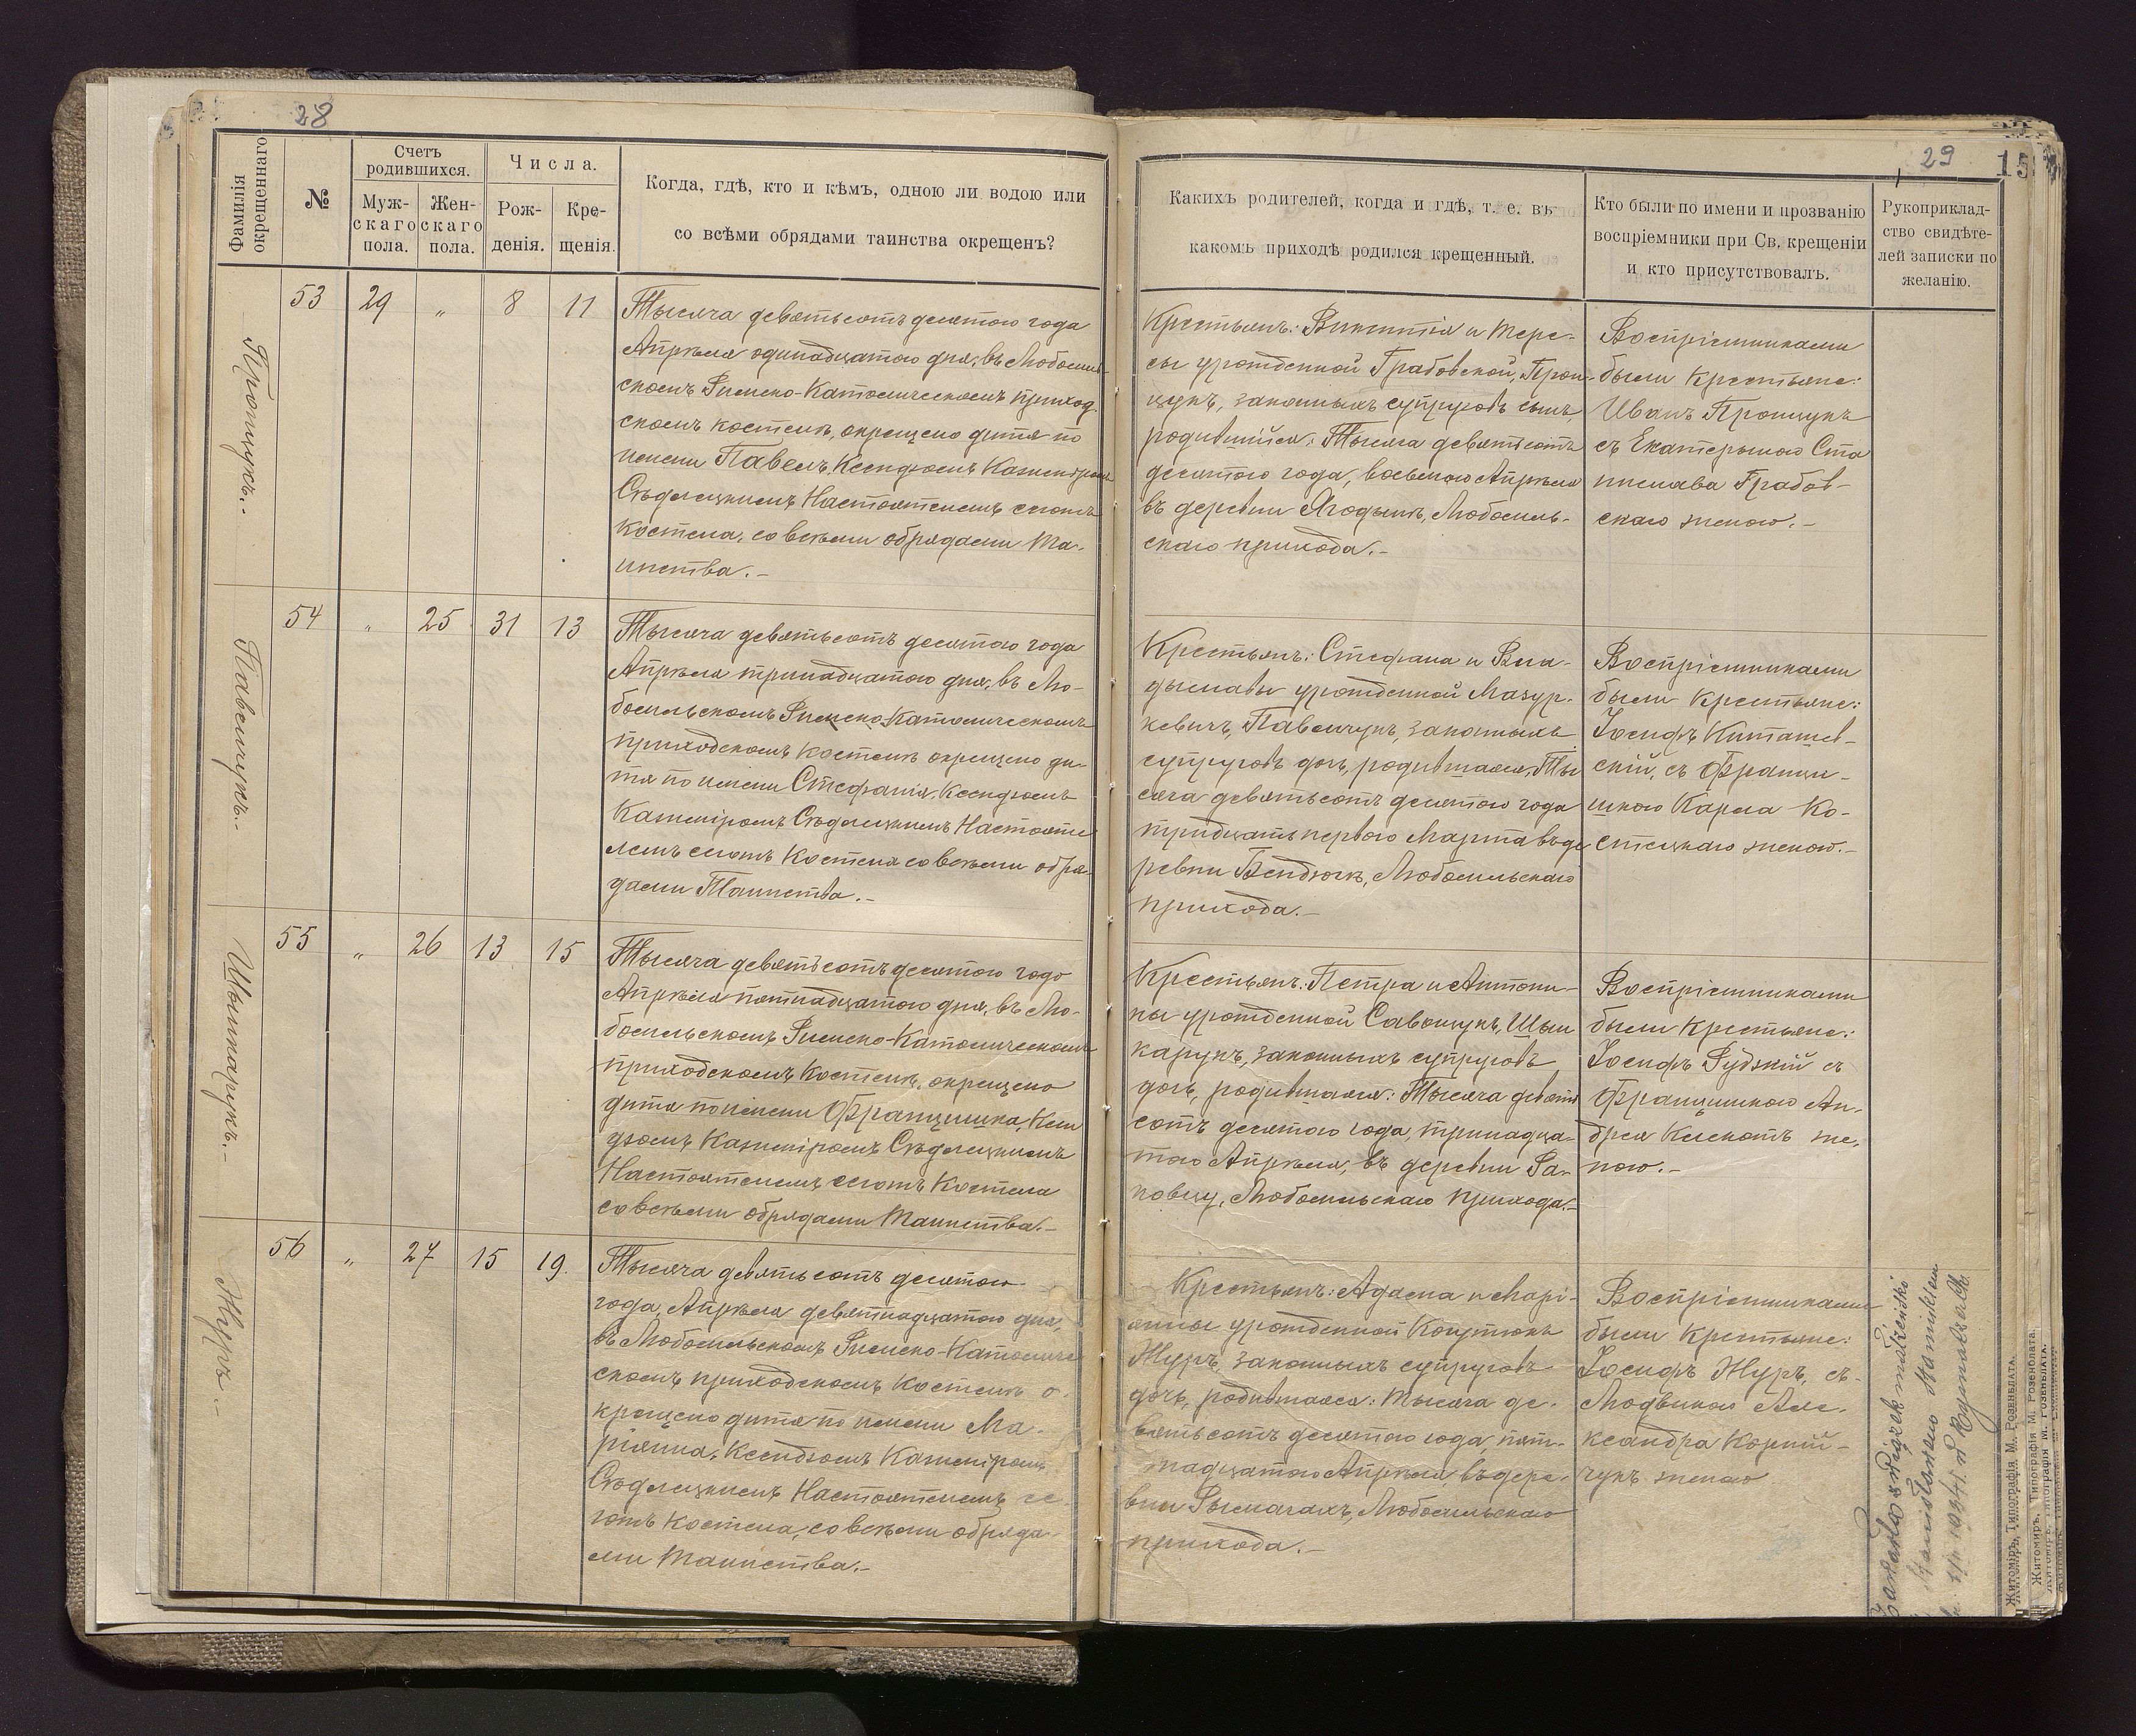 28
Фамилія
окрещеннаго
№
Счетъ
родившихся.
Муж-
скаго
пола.
Жен-
скаго
пола.
Числа.
Рож-
денія.
Кре-
щенія.
Когда, гдѣ, кто и кѣмъ, одною ли водою или
со всѣми обрядами таинства окрещенъ?
Прощукъ.
53
29
„
8
11
Тысяча девятьсотъ десятого года
Апрѣля одинадцатого дня, въ Любомль-
скомъ Римско-Католическомъ приход-
скомъ костелѣ, окрещено дитя по
имени Павелъ Ксендзомъ Казимiромъ
Сѣдлецкимъ Настоятелемъ сегожъ
Костела, со всѣми обрядами Та-
инства.-
54
Павлчукъ.
„
25
31
13
Тысяча девятьсотъ десятого года
Апрѣля тринадцатого дня, въ Лю-
бомльскомъ Римско-Католическомъ
приходскомъ костелѣ окрещено ди-
тя по имени Стефанія, Ксендзомъ
Казиміромъ Сѣдлецкимъ Настояте
лемъ сегожъ Костела со всѣми обря-
дами Таинства.-
55
Шынкарукъ.-
„
26
13
15
Тысяча девятьсотъ десятого года
Апрѣля пятнадцатого дня, въ Лю-
бомльскомъ Римско-Католическомъ
приходскомъ Костелѣ, окрещено
дитя по имени Францишка, Ксен
дзомъ Казиміромъ Сѣдлецкимъ
Настоятелемъ сегожъ Костела
со всѣми обрядами Таинства.-
56
Журъ.-
„
27
15
19.
Тысяча девятьсотъ десятого
года, Апрѣля девятнадцатого дня,
въ Любомльскомъ Римско-Католиче
скомъ приходскомъ Костелѣ о-
крещено дитя по имени Ма-
ріянна, Ксендзомъ Казиміромъ
Сѣдлецкимъ Настоятелемъ се-
гожъ Костела, со всѣми обряда-
ми Таинства.-
29
15
Какихъ родителей, когда и гдѣ, т. е. въ
какомъ приходѣ родился крещенный.
Кто были по имени и прозванію
воспріемники при Св. крещеніи
и кто присутствовалъ.
Рукоприклад-
ство свидѣте-
лей записки по
желанію.
Крестьянъ: Викентія и Тере-
сы урожденной Грабовской, Прон-
щукъ, законныхъ супруговъ сынъ,
родившійся: Тысяча девятьсотъ
десятого года, восьмого Апрѣля
въ деревни Ягодынѣ, Любомль-
скаго прихода.-
Воспріемниками
были Крестьяне:
Иванъ Пронщукъ
съ Екатерыною Ста
нислава Грабов-
скаго женою.-
Крестьянъ: Стефана и Вла-
дыславы урожденной Мазур-
кевичъ, Павлчукъ, законныхъ
супруговъ дочь, родившаяся, Ты
сяча девятьсотъ десятого года
тридцать первого Марта въ де
ревни Бендюгѣ, Любомльскаго
прихода.-
Воспріемниками
были Крестьяне:
Іосифъ Киташев-
скій, съ Францы-
шкою Карла Ко-
стецкаго женою.-
Крестьянъ: Петра и Антони-
ны урожденной Савощукъ, Шын
карукъ, законныхъ супруговъ
дочь, родившаяся: Тысяча девять
сотъ десятого года, тринадца-
того Апрѣля, въ деревни Ра-
новцу, Любомльскаго прихода.-
Воспріемниками
были Крестьяне:
Іосифъ Рудзкій съ
Францишкою Ан-
дрея Клекотъ же-
ною.-
Крестьянъ: Адама и Марі-
анны урожденной Коцтюкъ
Журъ, законныхъ супруговъ
дочь, родившаяся: тысяча де-
вятьсотъ десятого года, пят-
надцатого Апрѣля, въ дере-
вни Рымачахъ, Любомльскаго
прихода.-
Воспріемниками
были Крестьяне:
Іосифъ Журъ, съ
Людвикою Але-
ксандра Корній-
чукъ женою
Zawarła związek małżeński
Stanisławem
Житоміръ, Типографія М. Розенблата.
Житоміръ, Типографія М. Розенблата.